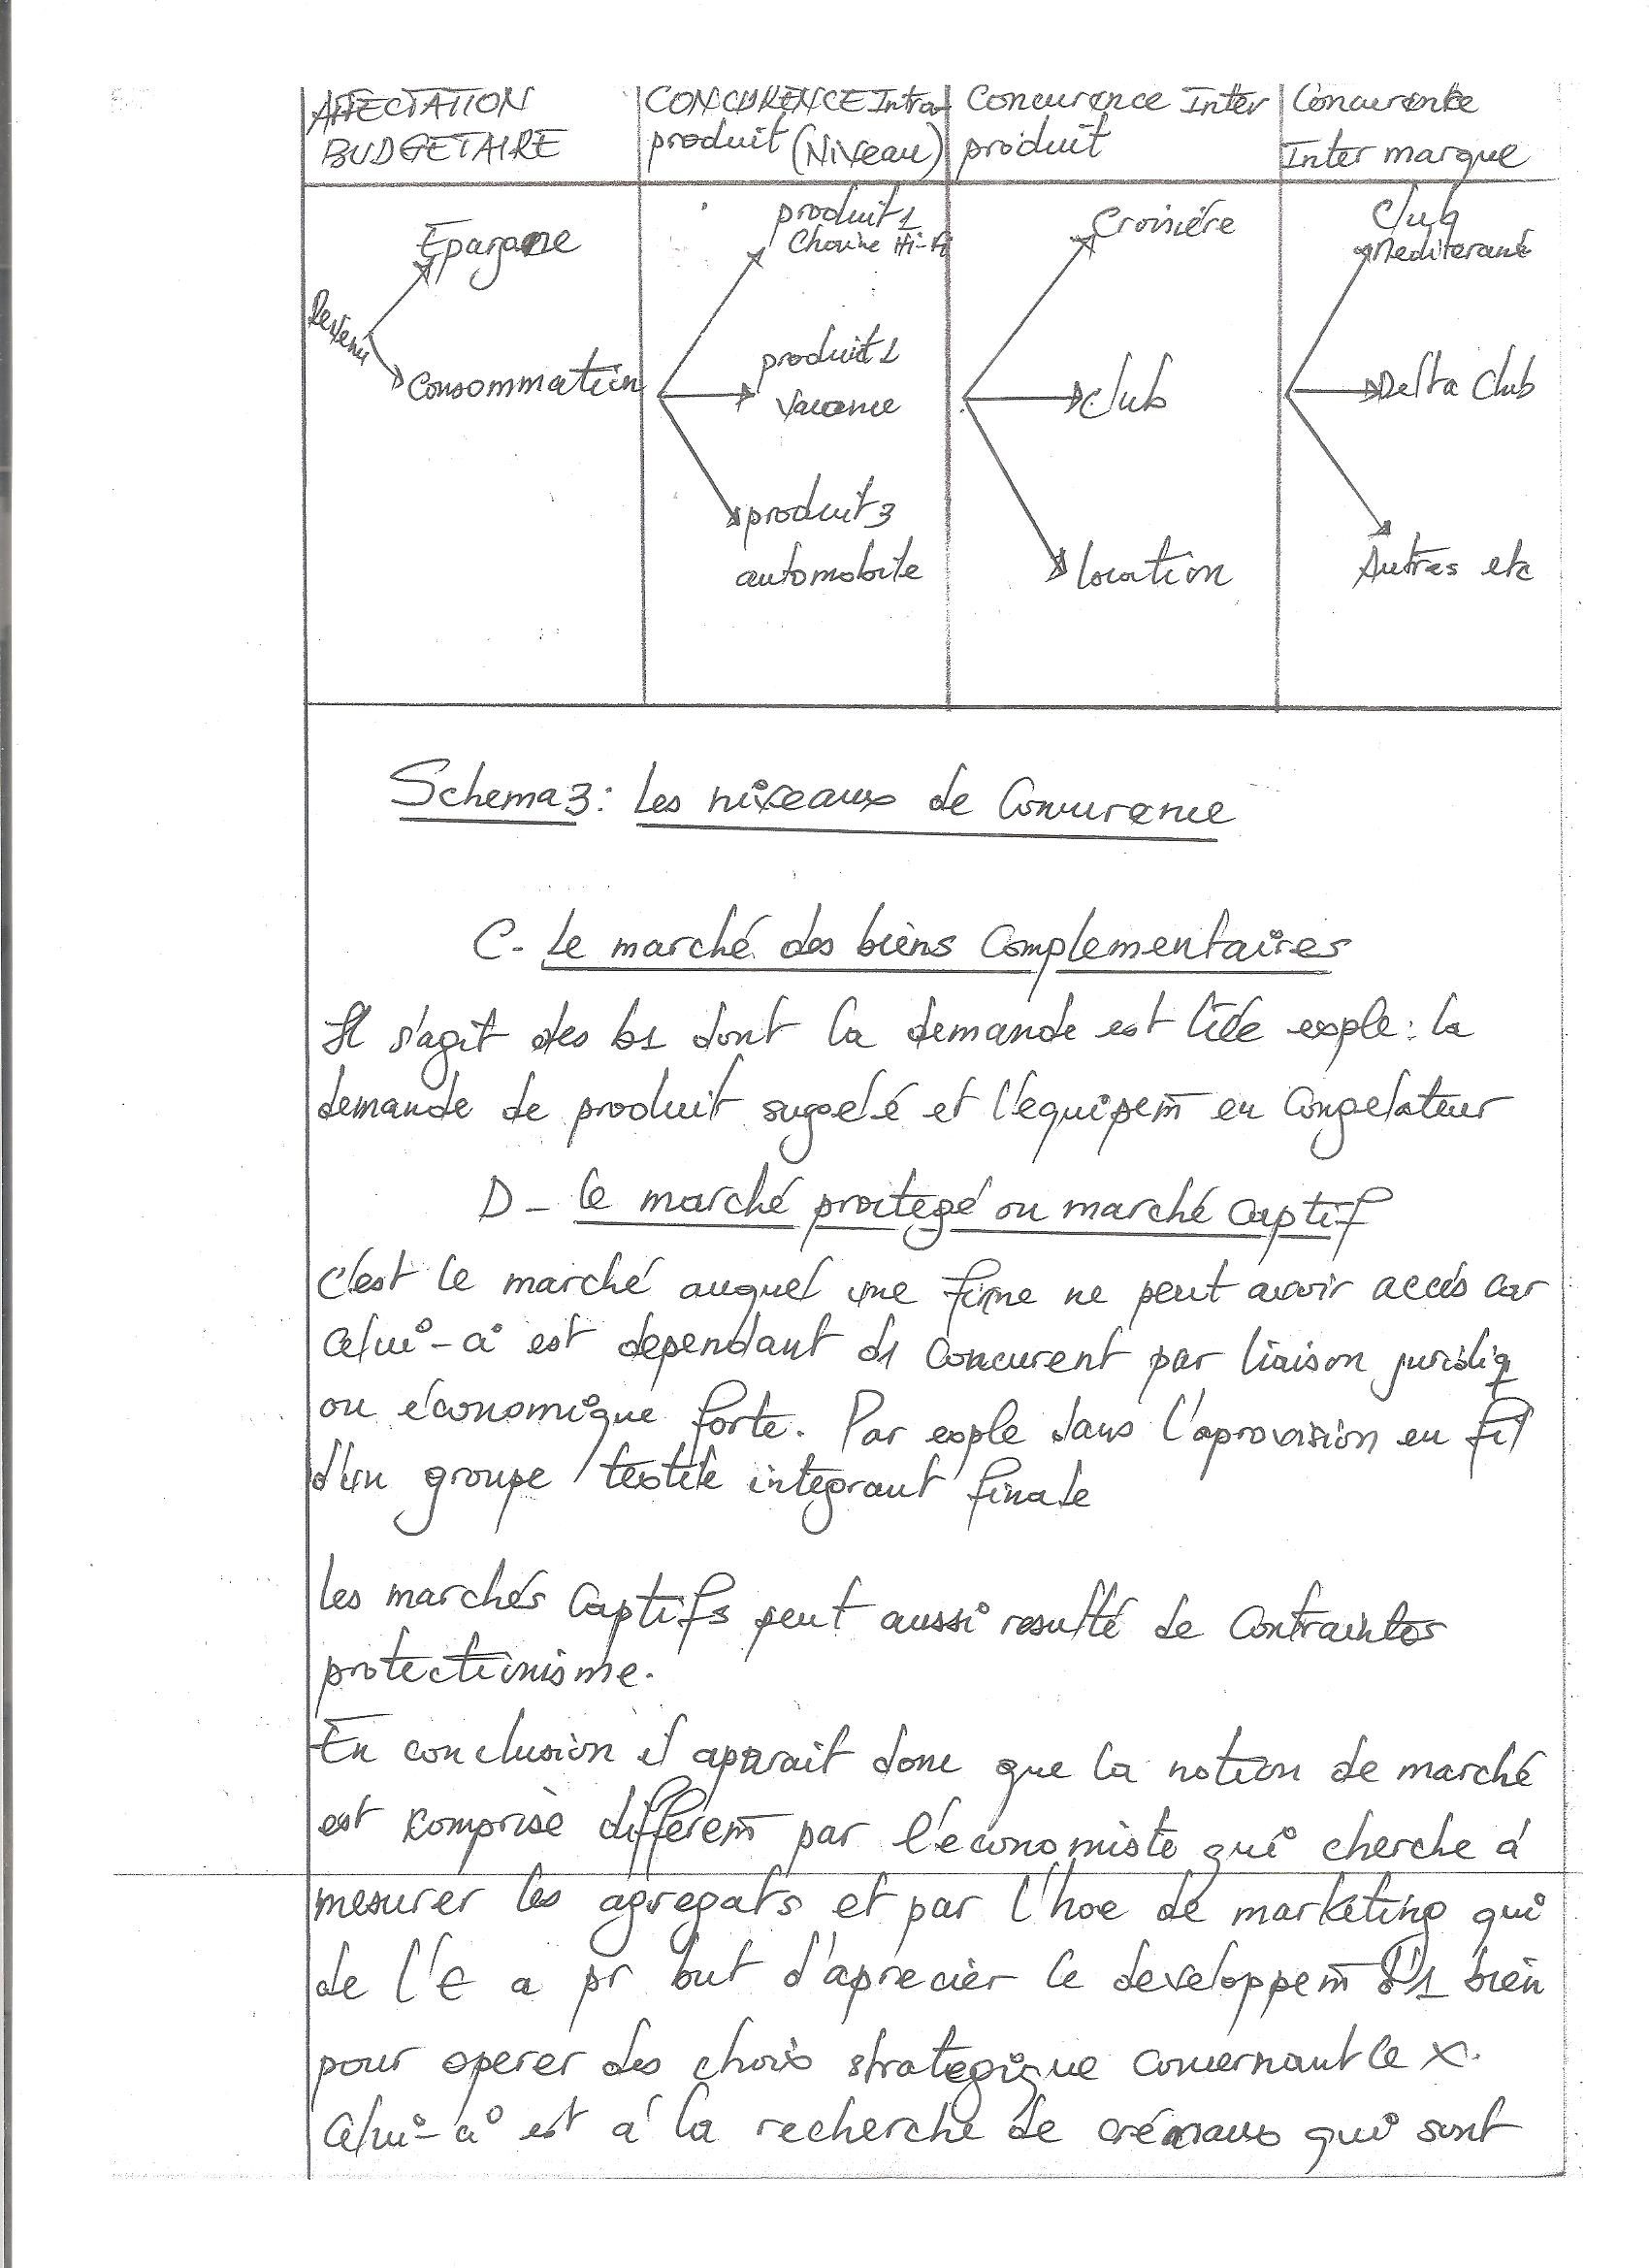 AFFECTATION BUDGETAIRE
CONCURENCE Intra-produit (Niveau)
Concurence Inter produit
Concurente Inter marque
Revenu
Epargne
Consommation
produit 1
Chaine Hi-Fi
produit 1
Vacance
produit 3
automobile
Croisiére
club
location
Club
Mediterané
Delta Club
Autres etc
Schema 3: Les niveaux de Concurence
C- Le marché des biens Complementaires
Il s'agit des b1 dont la demande est liée exple: la
demande de produit sugelé et l'equipem̄ en Congelateur
D- le marché protegé ou marché captif
c'est le marché auquel une firme ne peut avoir accés car
celui-ci est dependant d1 Concurent par liaison juridiq
ou économique forte. Par exple dans l'aprovision en fil
d'un groupe textile integrant finale
les marchés Captifs peut aussi resulté de Contraintes
protectionisme.
En conclusion il aparait donc que la notion de marché
est comprise différem̄ par l'économiste qui cherche à
mesurer les agregats et par l'hoe de marketing qui
de l'E a pr but d'aprecier le developpem̄ d'1 bien
pour operer des choix strategique concernant le x.
Celui-ci est á la recherche de crénaux qui sont